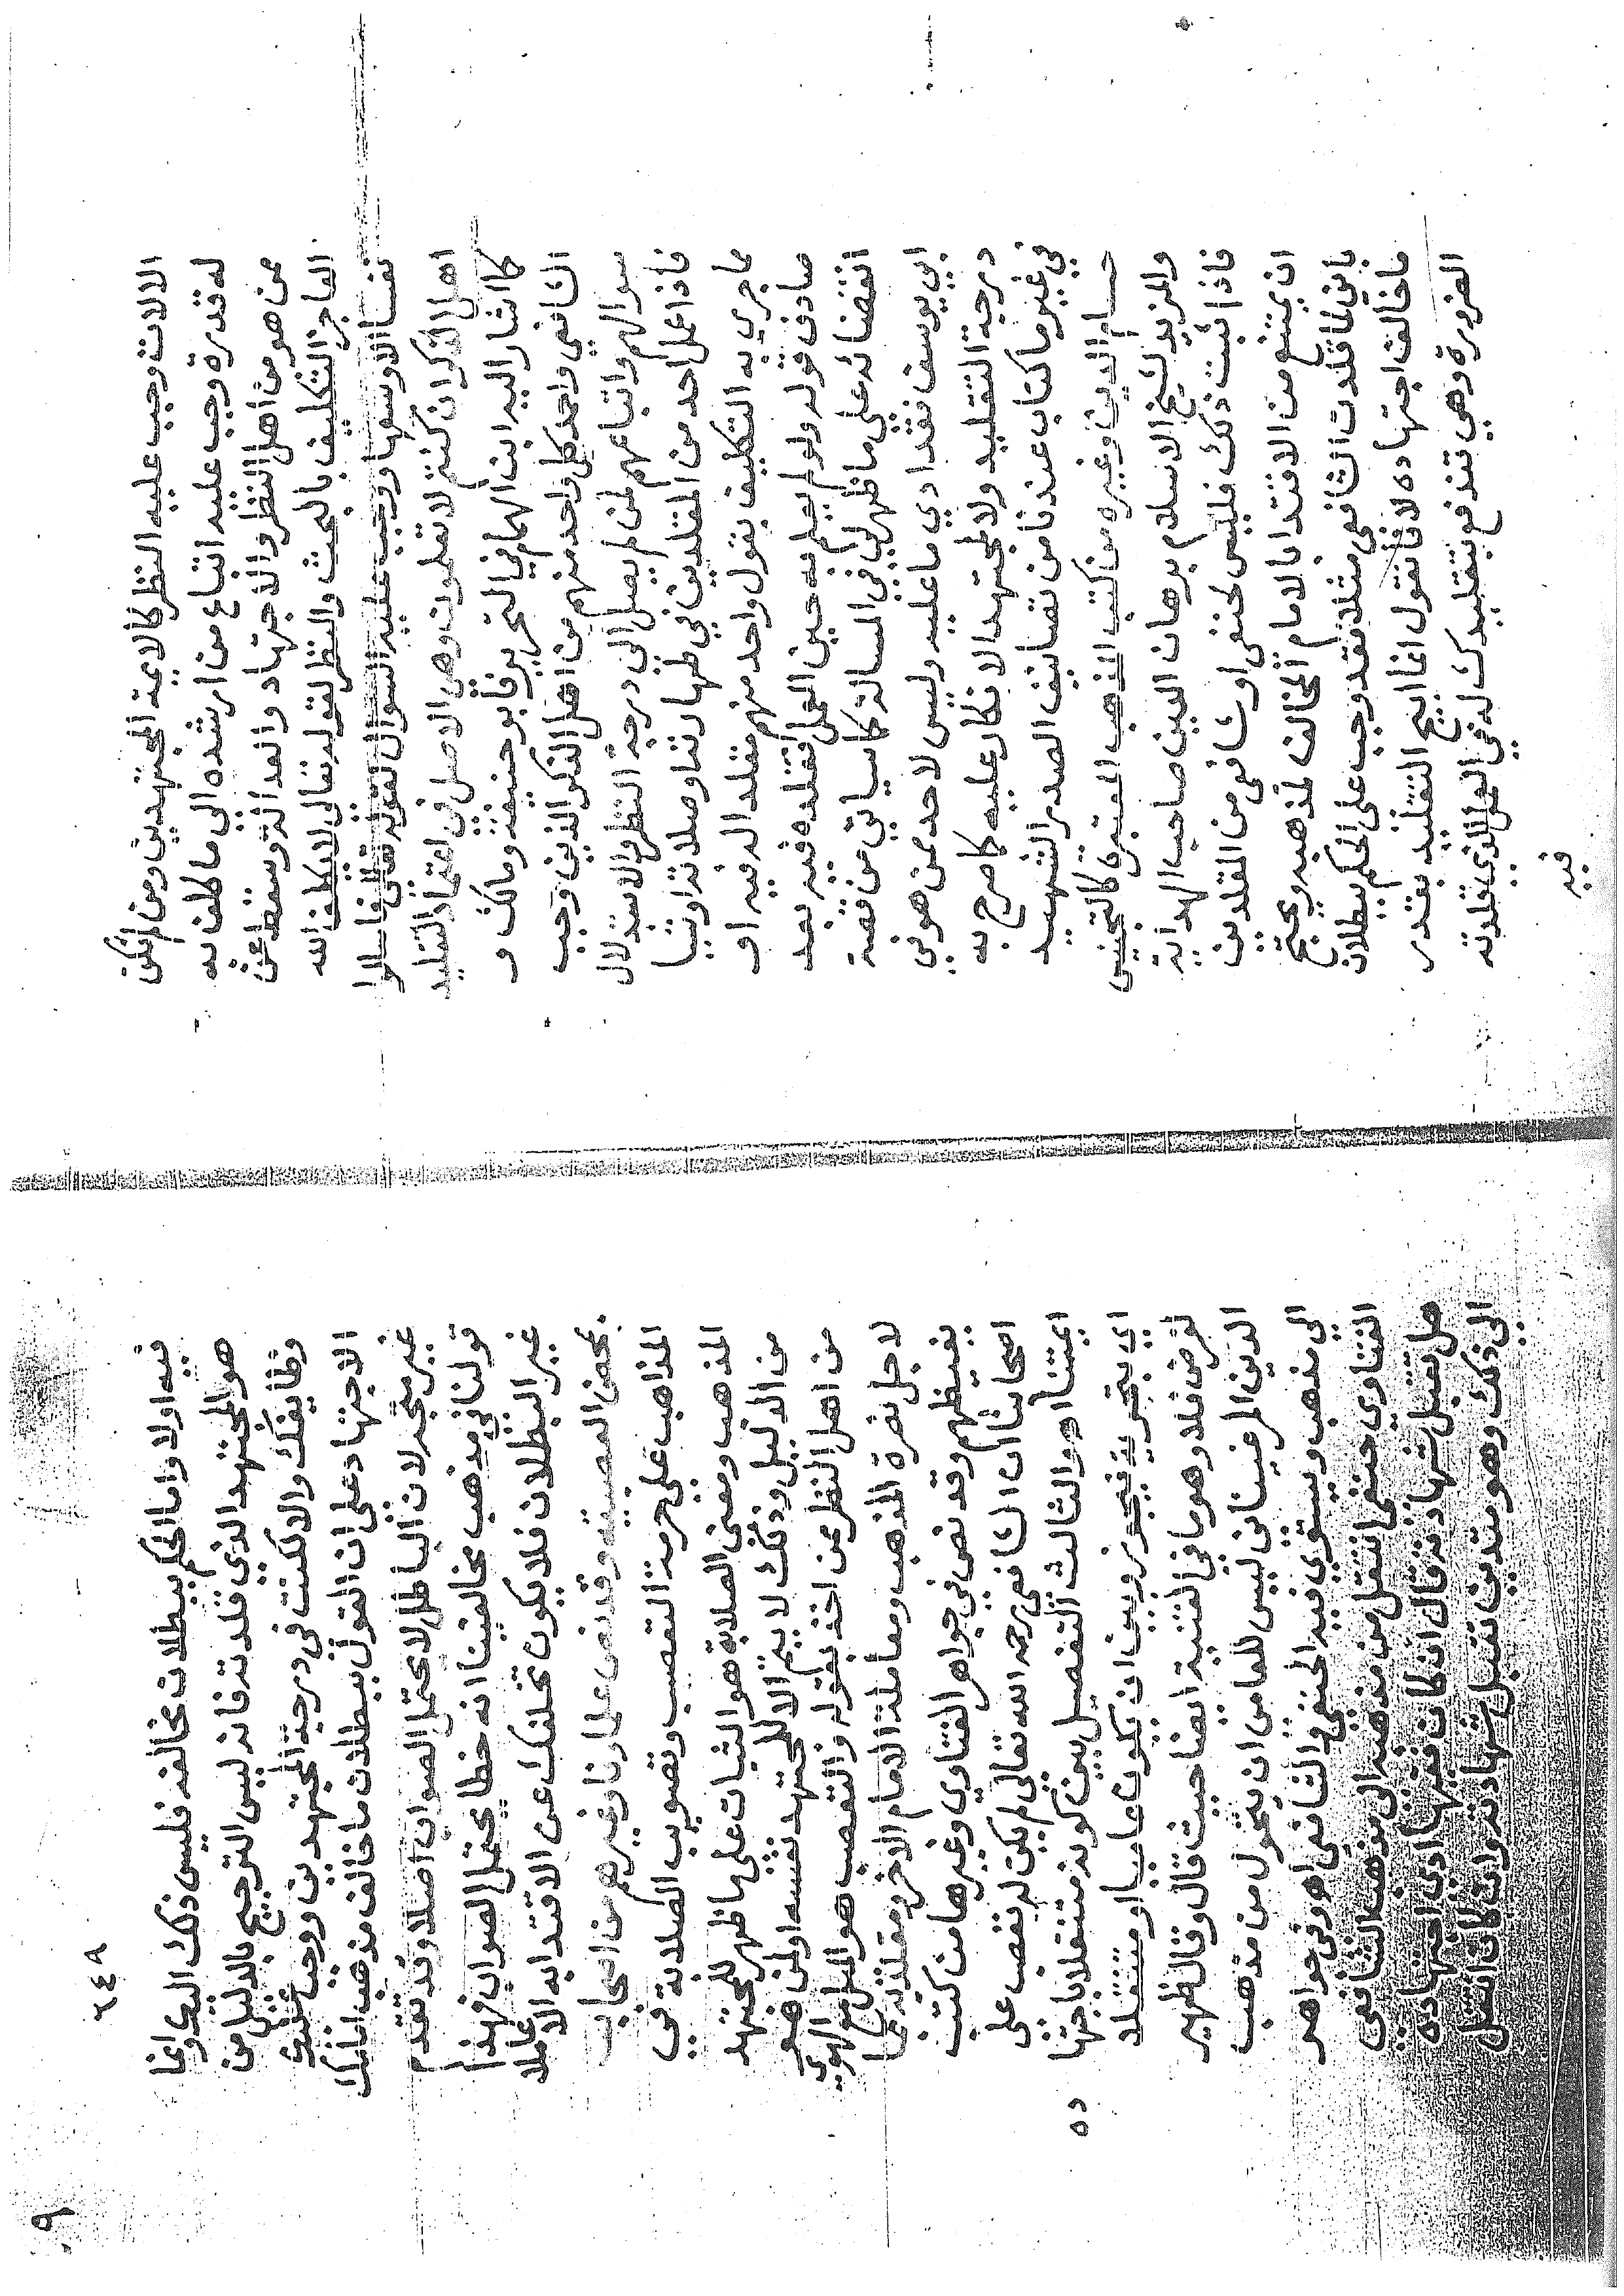 الالات وجب عليه النظر كالايمة المجتهدين ومن لم تكن
له قدرة وجب عليه اتباع من ارشده الى ما كلف به
ممن هو من اهل النظر والاجتهاد والعدالة وسقط عن
العاجز التكليف بالبحث والنظر لقوله تعالى لا يكلف الله
نفسا الا وسعها ووجب عليه السوال لقوله تعالى فاسالوا
اهل الذكر ان كنتم لا تعلمون وهي الاصل في اعتماد التقليد
كما اشار اليه ابن الهمام في التحرير فابو حنيفة ومالك و
الشافعي واحمد كل واحد منهم من اهل الذكر الذين وجب
سوالهم واتباعهم لمن لم يصل الى درجة النظر والاستدلال
فاذا عمل احد من المقلدين في طهارته وصلاته او شيا
مما جرى به التكليف بقول واحد منهم مقلدا له فيه او
صادف قوله ولو لم يعلم به حين العمل فقلده فيه بعد
انقضائه على ما ظهر لي في المسالة كما سياتي من قصة
ابي يوسف فقد ادى ما عليه وليس لاحد ممن هو في
درجة التقليد ولا لمجتهد الانكار عليه كما صرح به
في غير ما كتاب عندنا من تصانيف الصدر الشهيد
حسام الدين وغيره من كتب المذهب المعتبرة كالتجنيس
والمزيد لشيخ الاسلام برهان الدين صاحب الهداية
فاذا ثبت ذلك فليس لحنفي او شافعي من المقلدين
ان يمتنع من الاقتدا بالامام المخالف لمذهبه ويحتج
باني لما قلدت الشافعي مثلا فقد وجب على الحكم ببطلان
ما خالف اجتهاده لانا نقول انما ابيح التقليد بقدر
الضرورة وهي تندفع بتقليدك له في العمل الذي قلدته
فيه
٦٤٩
٩
فيه اولا واما الحكم ببطلان مخالفه فليس ذلك اليك وانما
هو المجتهد الذي قلدته فانه ليس الترجيح بالدليل من
وظايفك والا لكنت في درجة المجتهدين ووجب عليك
الاجتهاد على ان القول ببطلان ما خالف مذهب امامك
غير متجه لان الباطل لا يحتمل الصواب اصلا وقد تقدم
قولنا في مذهب مخالفينا انه خطا يحتمل الصواب فهذا
غير البطلان فلا يكون تخلفك عن الاقتدا به الا عملا
بمحض العصبية وقد نص علماؤنا وغيرهم من اصحاب
المذاهب على حرمة التعصب وتصويب الصلابة في
المذهب ومعنى الصلابة هو الثبات على ما ظهر للمجتهد
من الدليل وذلك لا يتم الا للمجتهد نفسه او لمن هو
من اهل النظر ممن اخذ بقوله والتعصب هو الميل مع الهوى
لاجل نصرة المذهب ومعاملة الامام الاخر ومقلديه بما
يغيظهم وقد نص في جواهر الفتاوي وغيرها من كتب
اصحابنا ان الشافعي رحمه الله تعالى لم يكن له تعصب على
ايمتنا اهـ والثالث التفصيل بين كونه منتقلا باجتها
ده
اي بتحريه فيجوز وبين ان يكون عاميا او منتقلا
لغرض فلا وهو ما في القنية ايضا حيث قال وقال ظهير
الدين المرغيناني ليس للعامي ان يتحول من مذهب
الى مذهب ويستوي فيه الحنفي والشافعي اهـ وفي جواهر
الفتاوي حنفي انتقل من مذهبه الى مذهب الشافعي
هل تقبل شهادته قال ان كان فقيها ادى اجتهاده
الى ذلك وهو متدين تقبل شهادته وان كان انتقل